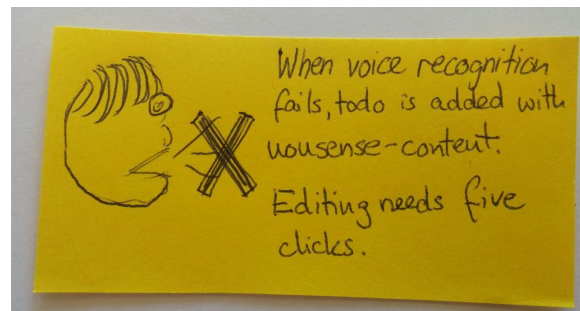 When voice recognition
fails, todo is added with
nousense-content.
Editing needs five
clicks.